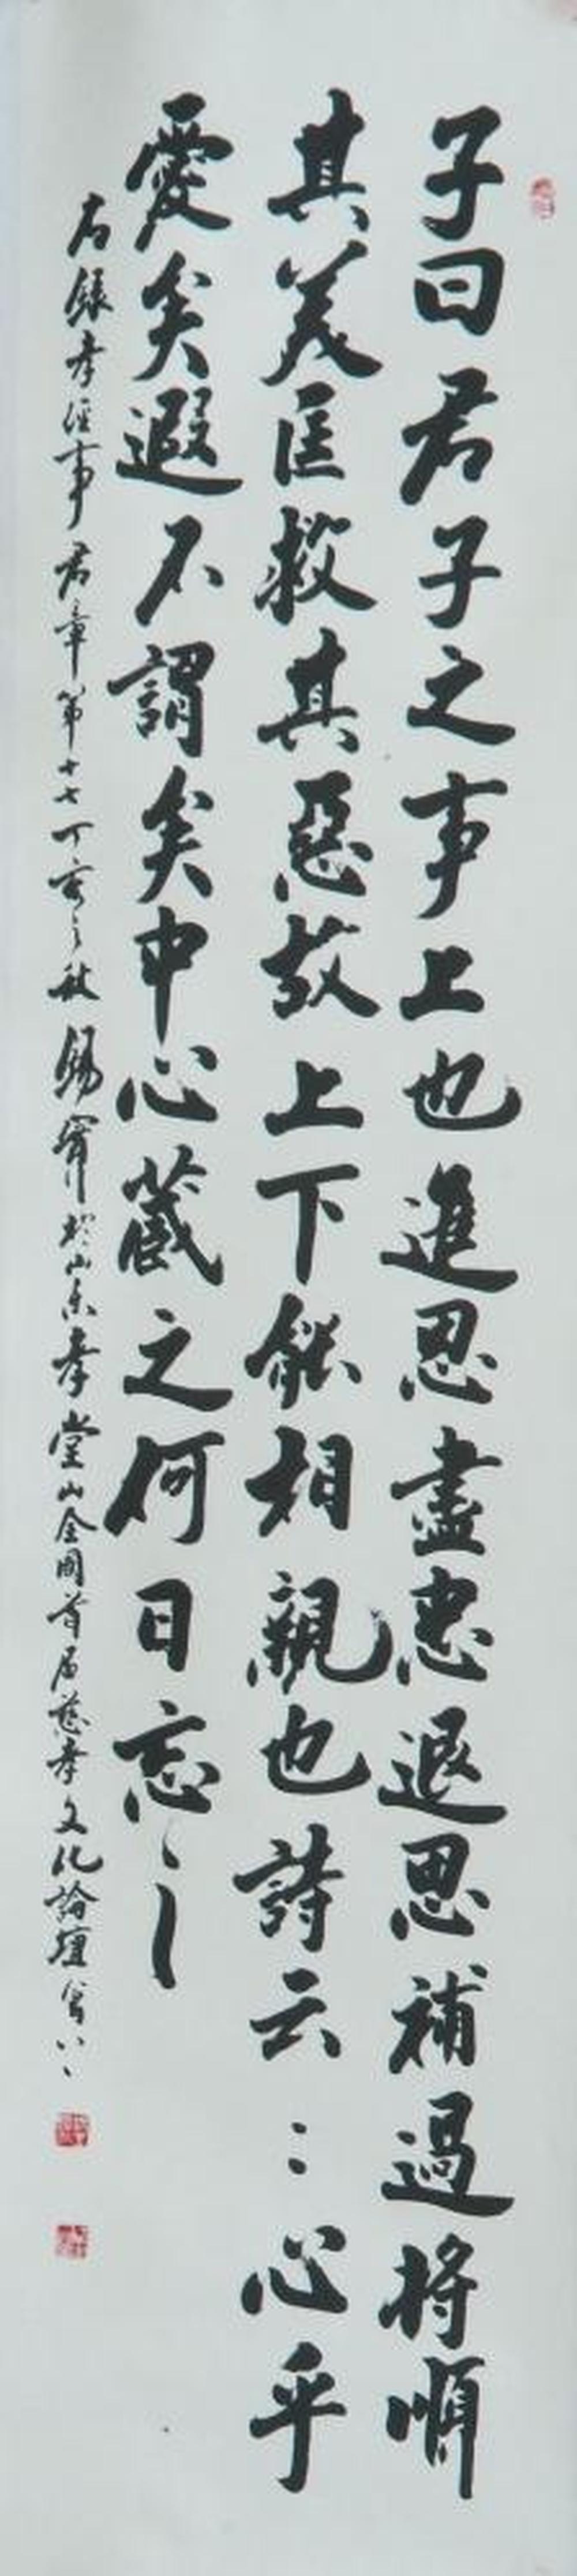 子曰君子之事上也進思盡忠退思補過將順
其美匡救其惡故上下能相親也詩云：心乎
愛矣遐不謂矣中心藏之何日忘之
右錄孝經事君章第十七丁亥之秋錫甯於山東孝堂山全國首屆慈孝文化論壇